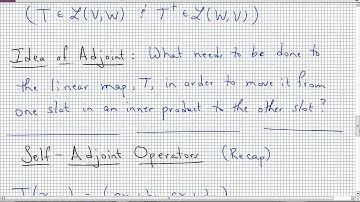 (T ∈ L(V,W) ⋮ T† ∈ L(W,V))
Idea of Adjoint: What needs to be done to
the linear map, T, in order to move it from
one slot in an inner product to the other slot?
Self-Adjoint Operators (Recap)